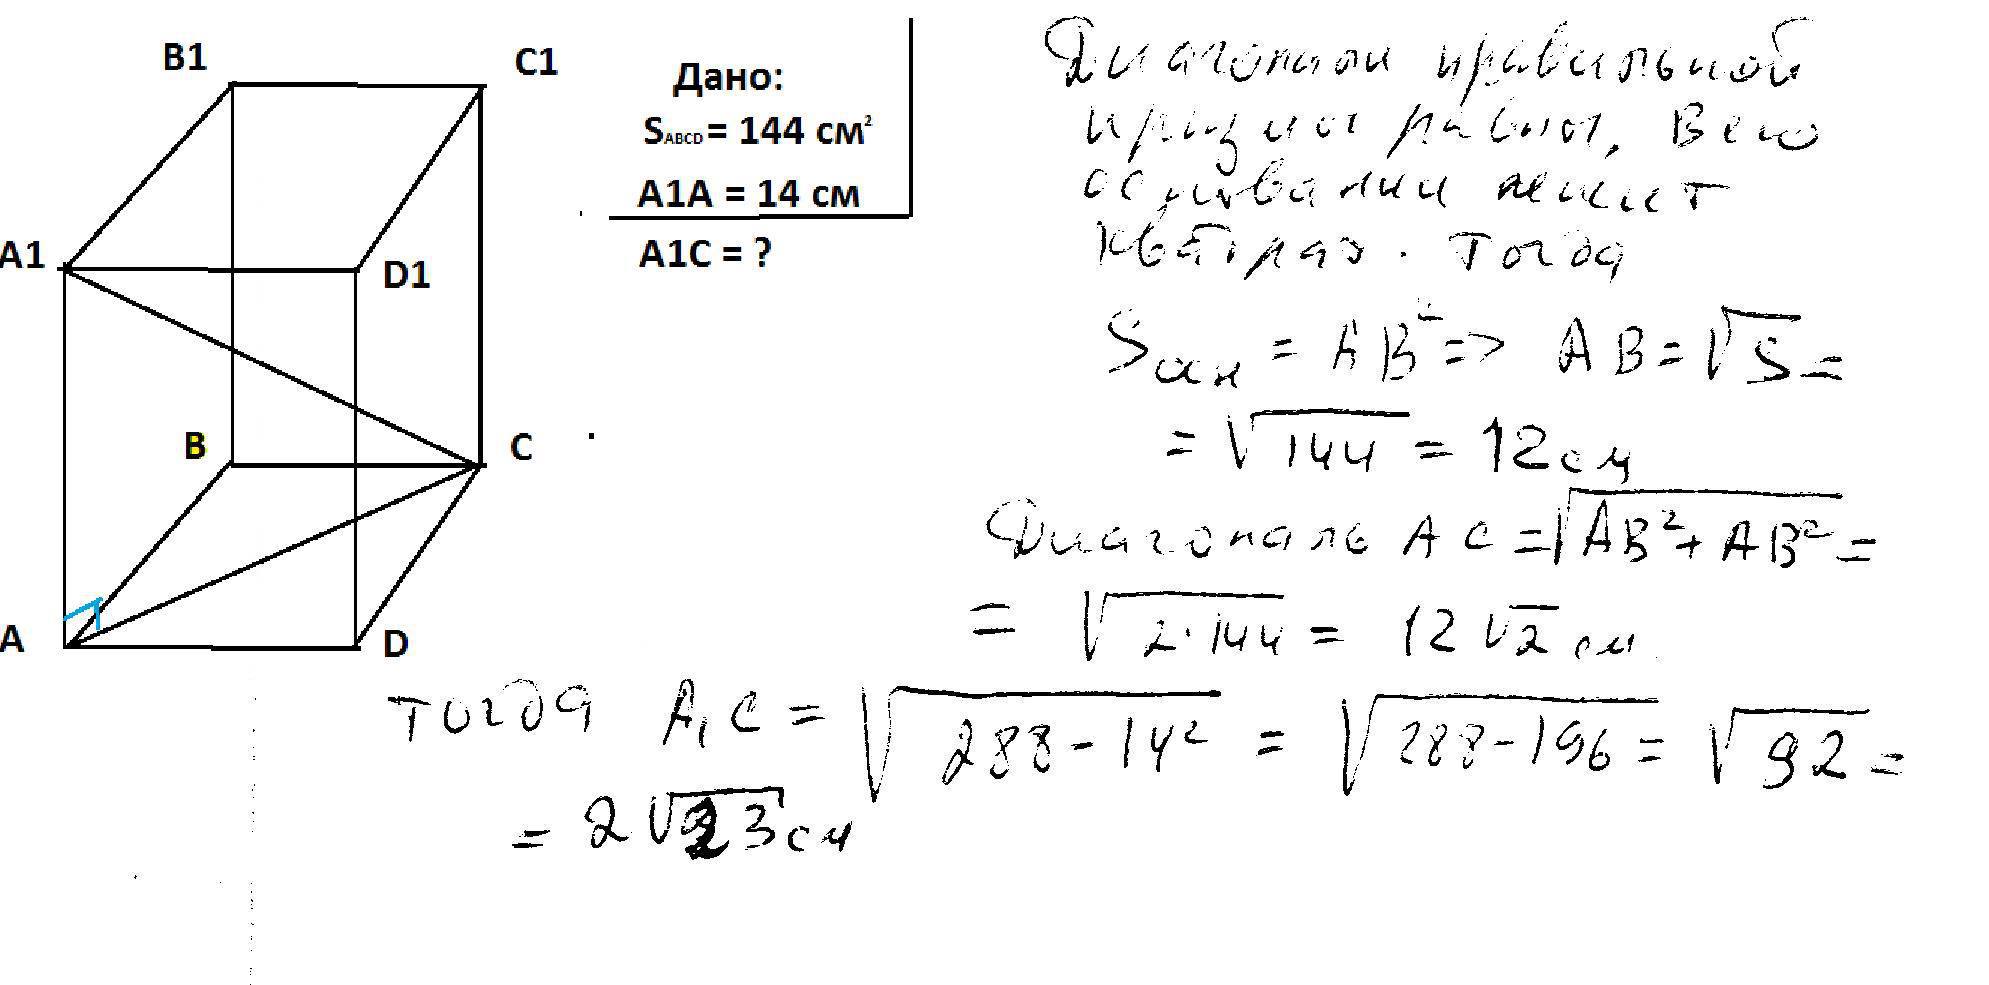 B1
C1
A1
D1
B
C
A
D
Дано:
SABCD = 144 см²
A1A = 14 см
A1C = ?
Диагонали правильной
призмы равны. В его
основании лежит
квадрат. Тогда
Sосн = AB² => AB = √S =
= √144 = 12 см
Диагональ AC = √AB² + AB² =
= √2·144 = 12√2 см.
Тогда A₁C = √288 - 14² = √288 - 196 = √92 =
= 2√23 см